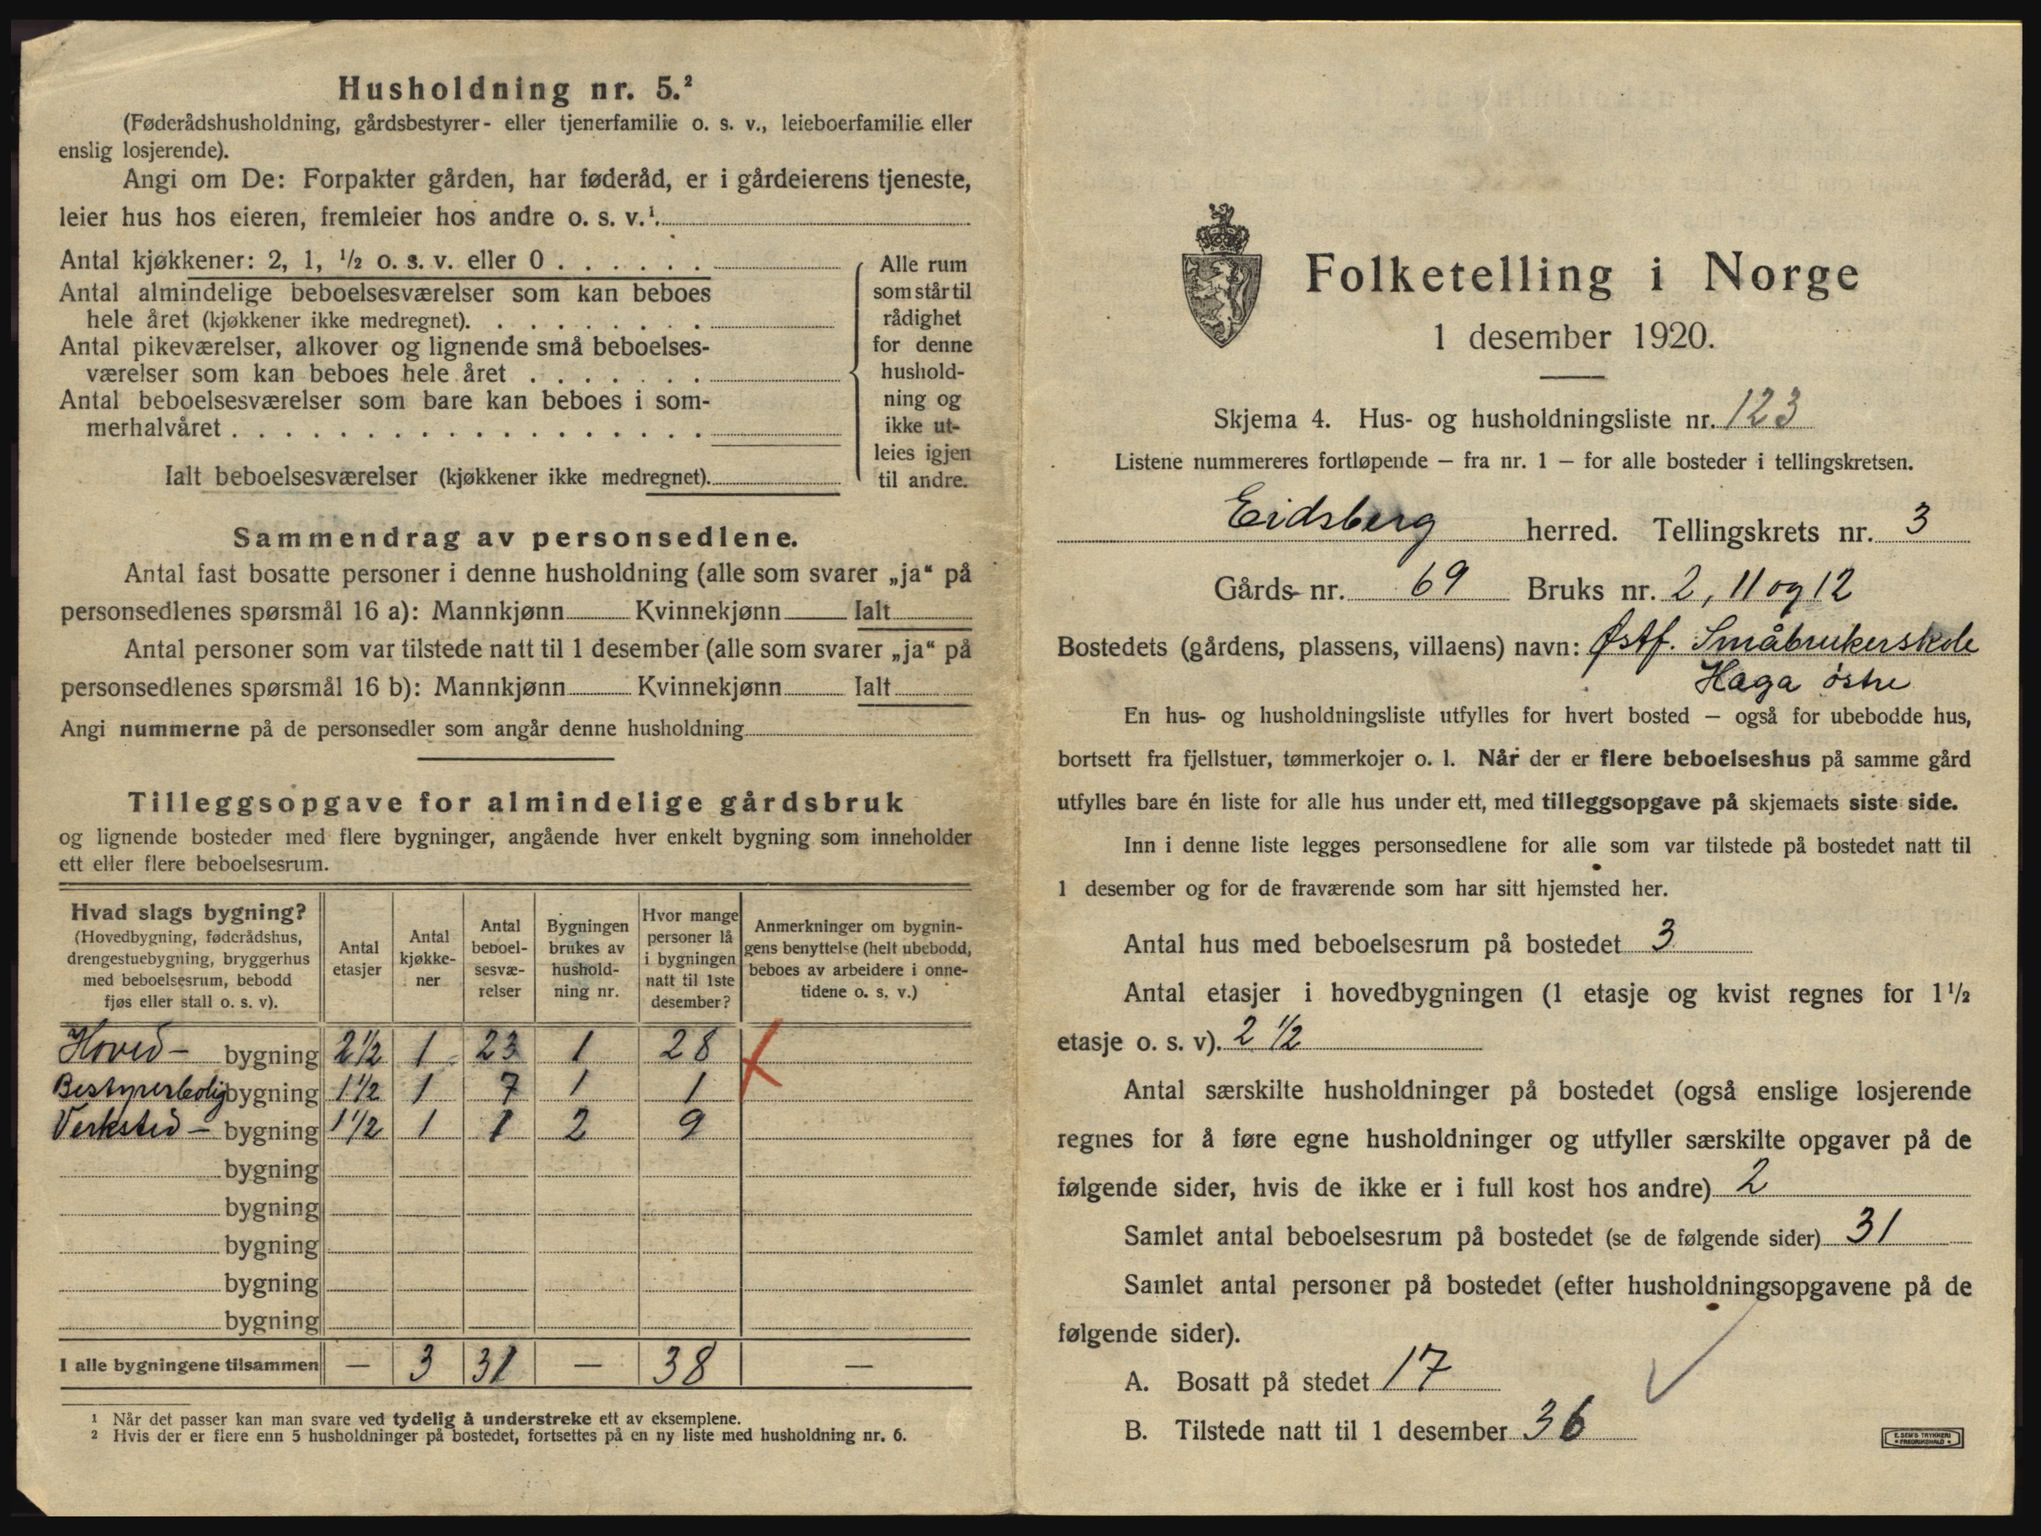 Husholdning nr. 5.²
(Føderådshusholdning, gårdsbestyrer- eller tjenerfamilie o. s. v., leieboerfamilie eller
enslig losjerende).
Angi om De: Forpakter gården, har føderåd, er i gårdeierens tjeneste,
leier hus hos eieren, fremleier hos andre o. s. v.¹.
Antal kjøkkener: 2, 1, ½ o. s. v. eller 0 . . . . . .
Antal almindelige beboelsesværelser som kan beboes
hele året (kjøkkener ikke medregnet). . . . . . . . .
Antal pikeværelser, alkover og lignende små beboelses-
værelser som kan beboes hele året . . . . . . .
Antal beboelsesværelser som bare kan beboes i som-
merhalvåret . . . . . . . . . . . . . . . . . .
Ialt beboelsesværelser (kjøkkener ikke medregnet).
Alle rum
som står til
rådighet
for denne
hushold-
ning og
ikke ut-
leies igjen
til andre.
Sammendrag av personsedlene.
Antal fast bosatte personer i denne husholdning (alle som svarer „ja“ på
personsedlenes spørsmål 16 a): Mannkjønn Kvinnekjønn Ialt
Antal personer som var tilstede natt til 1 desember (alle som svarer „ja“ på
personsedlenes spørsmål 16 b): Mannkjønn Kvinnekjønn Ialt
Angi nummerne på de personsedler som angår denne husholdning
Tilleggsopgave for almindelige gårdsbruk
og lignende bosteder med flere bygninger, angående hver enkelt bygning som inneholder
ett eller flere beboelsesrum.
Hvad slags bygning?
(Hovedbygning, føderådshus,
drengestuebygning, bryggerhus
med beboelsesrum, bebodd
fjøs eller stall o. s. v).
Antal
etasjer
Antal
kjøkke-
ner
Antal
beboel-
sesvæ-
relser
Bygningen
brukes av
hushold-
ning nr.
Hvor mange
personer lå
i bygningen
natt til 1ste
desember?
Anmerkninger om bygnin-
gens benyttelse (helt ubebodd,
beboes av arbeidere i onne-
tidene o. s. v.)
Hoved- bygning 2½ 1 23 1 28
Bestyrerbolig bygning 1½ 1 7 1 1
Verksted - bygning 1½ 1 1 2 9
bygning
bygning
bygning
bygning
bygning
I alle bygningene tilsammen — 3 31 — 38 —
¹ Når det passer kan man svare ved tydelig å understreke ett av eksemplene.
² Hvis der er flere enn 5 husholdninger på bostedet, fortsettes på en ny liste med husholdning nr. 6.
Folketelling i Norge
1 desember 1920.
Skjema 4. Hus- og husholdningsliste nr. 123
Listene nummereres fortløpende – fra nr. 1 – for alle bosteder i tellingskretsen.
Eidsberg herred. Tellingskrets nr. 3
Gårds- nr. 69 Bruks nr. 2, 11 og 12
Bostedets (gårdens, plassens, villaens) navn: Østf. Småbrukerskole
Haga østre
En hus- og husholdningsliste utfylles for hvert bosted – også for ubebodde hus,
bortsett fra fjellstuer, tømmerkojer o. l. Når der er flere beboelseshus på samme gård
utfylles bare én liste for alle hus under ett, med tilleggsopgave på skjemaets siste side.
Inn i denne liste legges personsedlene for alle som var tilstede på bostedet natt til
1 desember og for de fraværende som har sitt hjemsted her.
Antal hus med beboelsesrum på bostedet 3
Antal etasjer i hovedbygningen (1 etasje og kvist regnes for 1½
etasje o. s. v). 2 ½
Antal særskilte husholdninger på bostedet (også enslige losjerende
regnes for å føre egne husholdninger og utfyller særskilte opgaver på de
følgende sider, hvis de ikke er i full kost hos andre) 2
Samlet antal beboelsesrum på bostedet (se de følgende sider) 31
Samlet antal personer på bostedet (efter husholdningsopgavene på de
følgende sider).
A. Bosatt på stedet 17
B. Tilstede natt til 1 desember 36
E. SEM'S TRYKKERI
FREDRIKSHALD